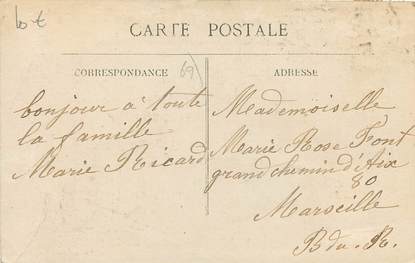 10 €
CARTE POSTALE
CORRESPONDANCE
69
bonjour à toute
la famille
Marie Ricard
ADRESSE
Mademoiselle
Marie Rose Font
grand chemin d'Aix
80
Marseille
B du R.